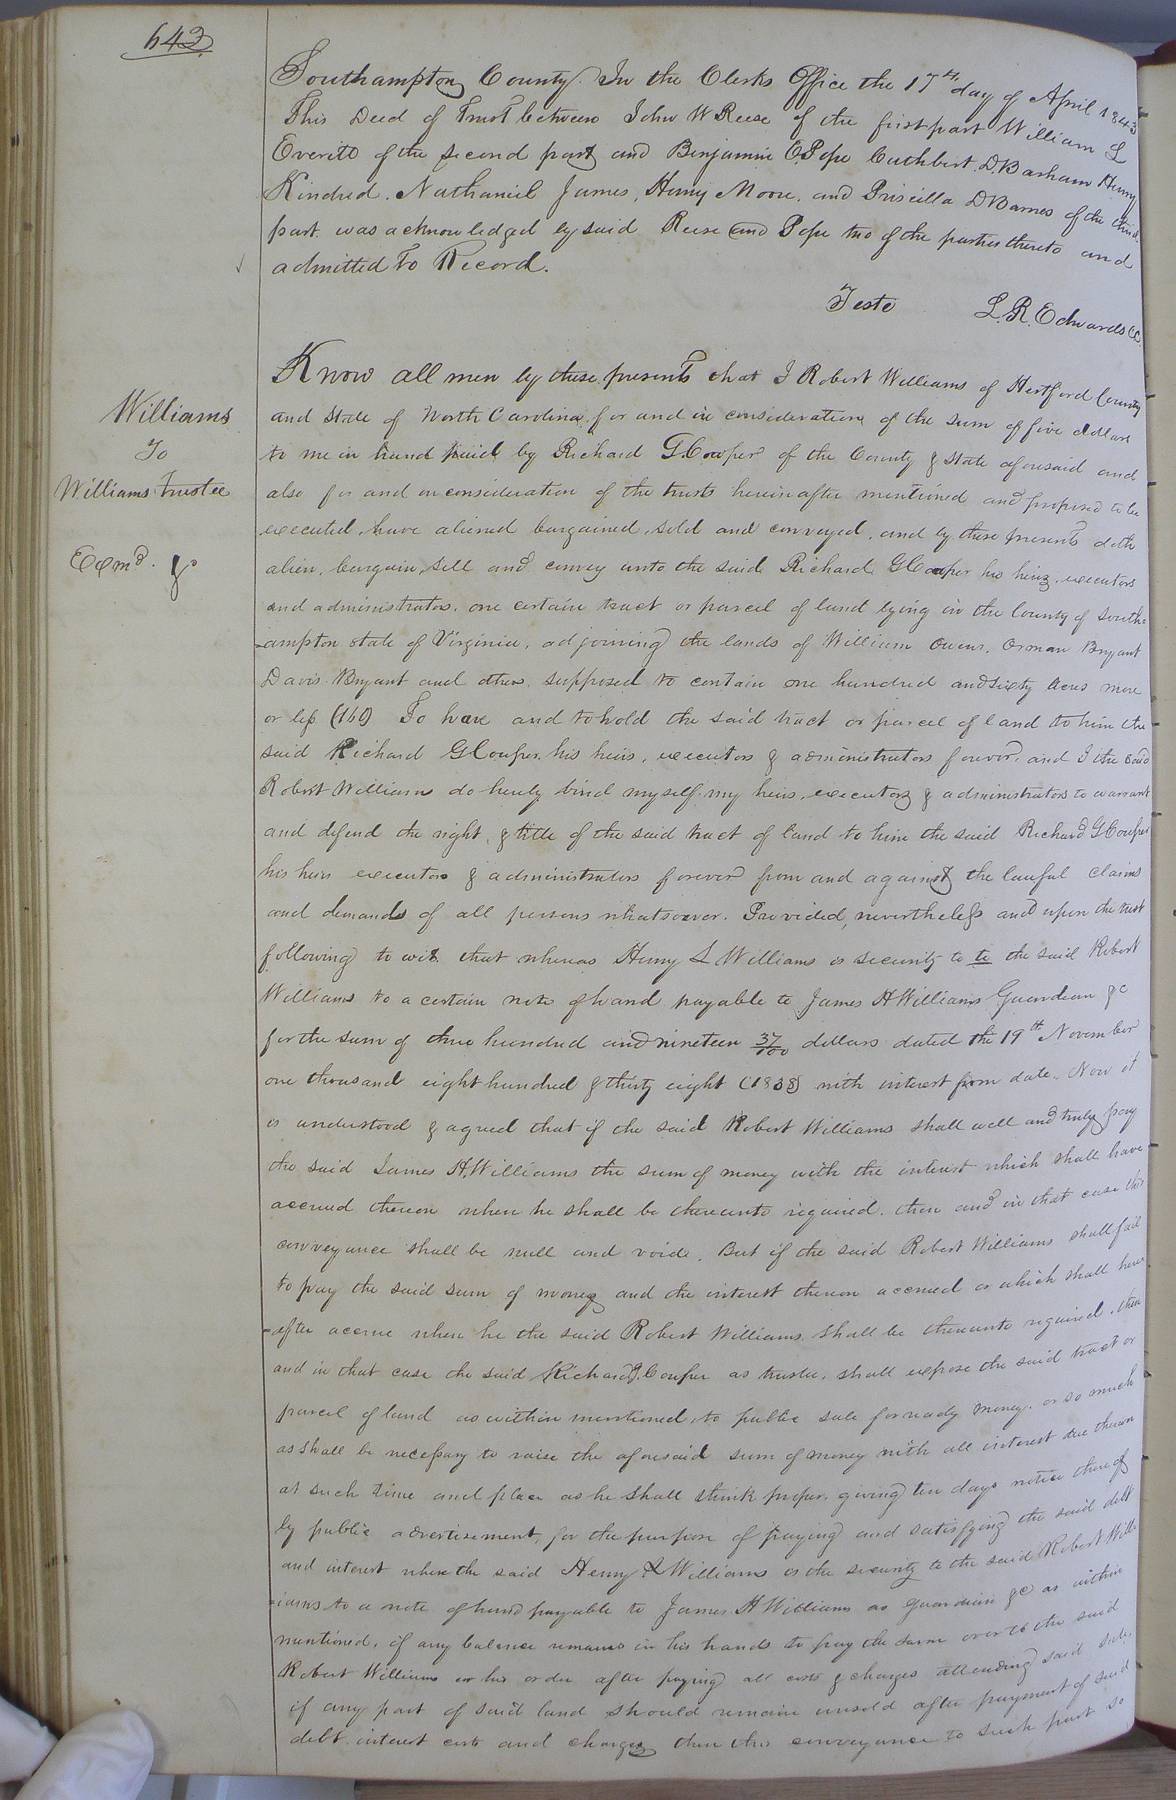 642
Southampton County. In the Clerks Office the 17th day of April 1843
This Deed of Trust between John W Reese of the first part William L
Everitt of the second part and Benjamin E. Pope Cuthbert D. Barham Henry
Kindred. Nathaniel James, Henry Moore, and Priscilla D Barnes of the third
part. was acknowledged by said Reese and Pope two of the parties thereto and
admitted to Record.
Teste L. R. Edwards CC.
Williams
To
Williams trustee
Exmd.
Know all men by these presents that I Robert Williams of Hertford County
and State of North Carolina, for and in consideration of the sum of five dollars
to me in hand paid by Richard G. Cowper of the County & State aforesaid and
also for and in consideration of the trusts hereinafter mentioned and proposed to be
executed, have aliened bargained, sold and conveyed, and by these presents doth
alien, bargain, sell and convey unto the said Richard G Cowper his heirs, executors
and administrators. one certain tract or parcel of land lying in the County of South=
-ampton state of Virginia, adjoining the lands of William Owens, Orman Bryant
Davis Bryant and others. supposed to contain one hundred and sixty acres more
or less (160) To have and to hold the said tract or parcel of land to him the
said Richard G Cowper, his heirs, executors & administrators forever. and I the said
Robert Williams do hereby bind myself my heirs, executors & administrators to warrant
and defend the right, & title of the said tract of land to him the said Richard G Cowper
his heirs executors & administrators forever from and against the lawful claims
and demands of all persons whatsoever. Provided, nevertheless and upon the trust
following to wit that whereas Henry L Williams is security to to the said Robert
Williams to a certain note of hand payable to James H Williams Guardian &c
for the sum of three hundred and nineteen 37/100 dollars dated the 19th November
one thousand eight hundred & thirty eight (1838) with interest from date. Now it
is understood & agreed that if the said Robert Williams shall well and truly pay
the said James H. Williams the sum of money with the interest which shall have
accrued thereon when he shall be thereunto required. then and in that case this
conveyance shall be null and void. But if the said Robert Williams shall fail
to pay the said sum of money and the interest thereon accrued or which shall here
-after accrue when he the said Robert Williams shall be thereunto required, then
and in that case the said Richard G. Cowper as trustee, shall expose the said tract or
parcel of land as within mentioned, to public sale for ready money. or so much
as shall be necessary to raise the aforesaid sum of money with all interest due thereon
at such time and place as he shall think proper. giving ten days notice thereof
by public advertisement, for the purpose of paying and satisfying the said debt
and interest where the said Henry L Williams is the security to the said Robert Will=
=iams to a note of hand payable to James H Williams as guardian &c as within
mentioned, if any balance remains in his hands to pay the same over to the said
Robert Williams or his order after paying all costs & charges attending said sale.
if any part of said land should remain unsold after payment of said
debt interest costs and charges then this conveyance to such part so